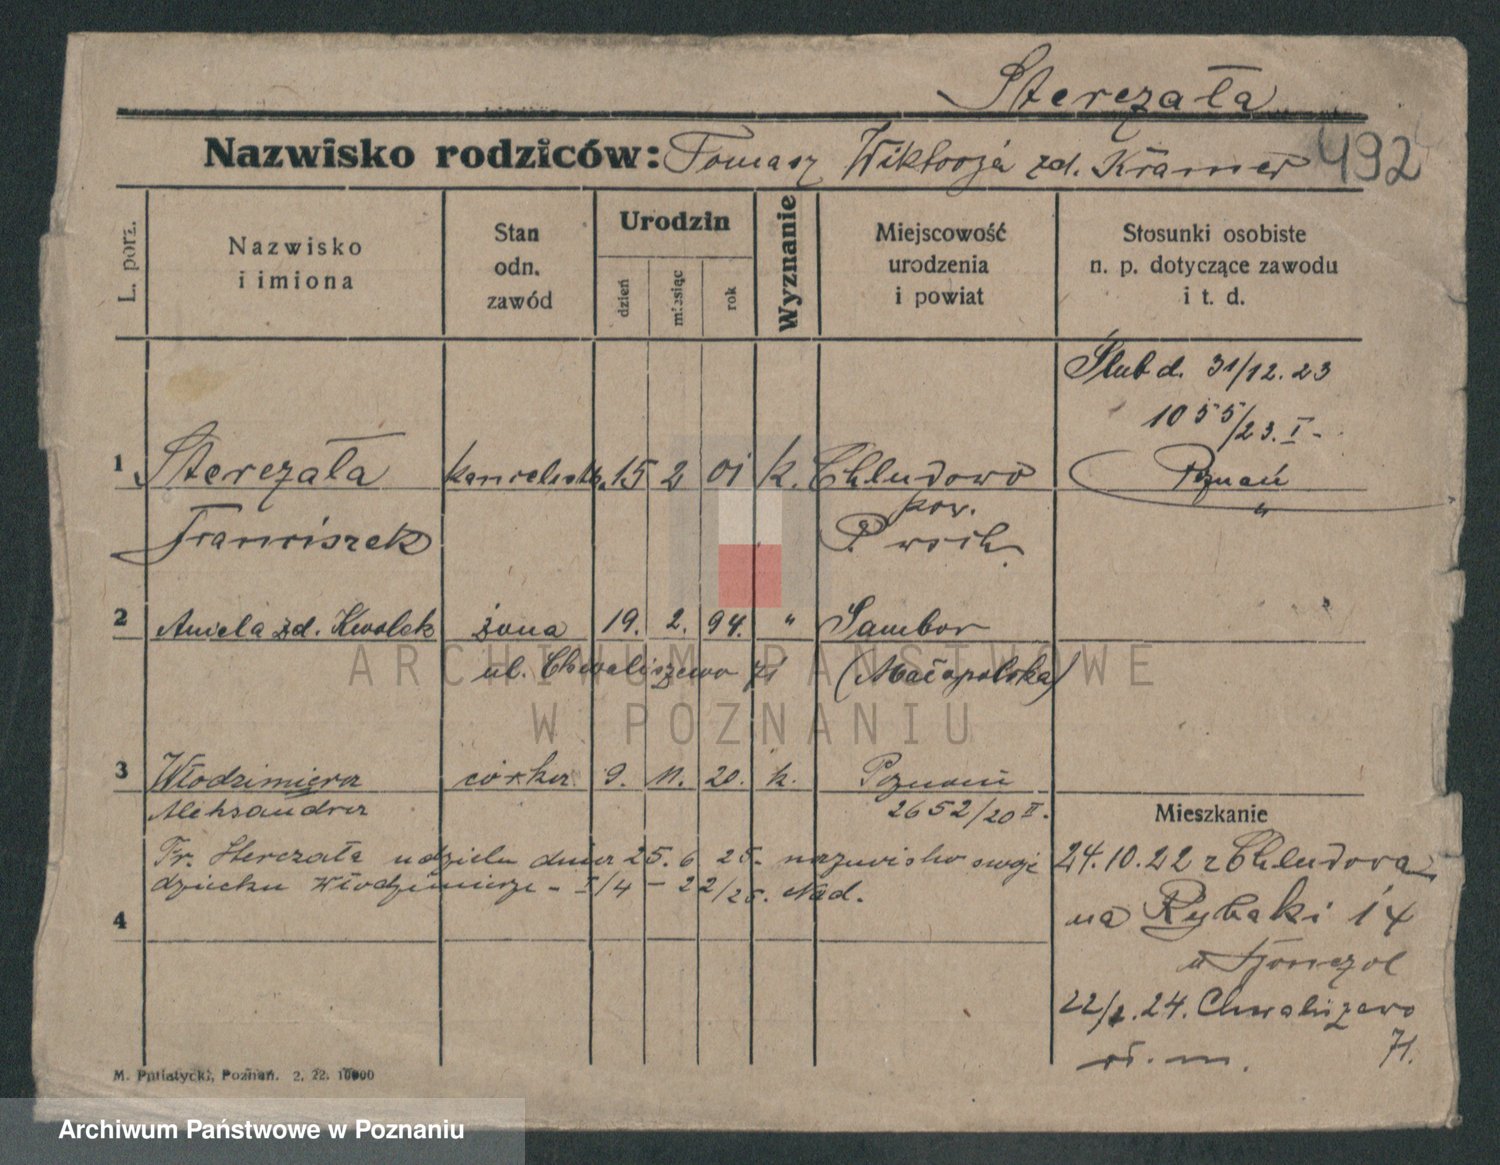 Sterczała
Nazwisko rodziców: Tomasz Wiktorja zd. Krämer 492
L. porz.
Nazwisko
i imiona
Stan
odn.
zawód
Urodzin
dzień
miesiąc
rok
Wyznanie
Miejscowość
urodzenia
i powiat
Stosunki osobiste
n. p. dotyczące zawodu
i t. d.
Ślub d. 31/12. 23
1055/23. I -
Poznań
"
1 Sterczała kancelista 15 2 01 k. Chludowo
pow.
Franciszek P. wsch.
2 Aniela zd. Kwolek żona 19. 2. 94. " Sambor
ul. Chwaliszewo 71 (Małopolska)
3 Włodzimiera córka 9. 11. 20. k. Poznań
Aleksandra 2652/20 II.
Fr. Sterczała udziela dnia 25. 6. 25. nazwisko swoje
dziecku Włodzimierze - I/4 - 22/25. Nad.
4
Mieszkanie
24.10.22 z Chludowa
na Rybaki 14
u
22/2. 24. Chwaliszewo
71.
M. Putiatycki, Poznań. 2. 22. 10000
ARCHIWUM PAŃSTWOWE
W POZNANIU
Archiwum Państwowe w Poznaniu